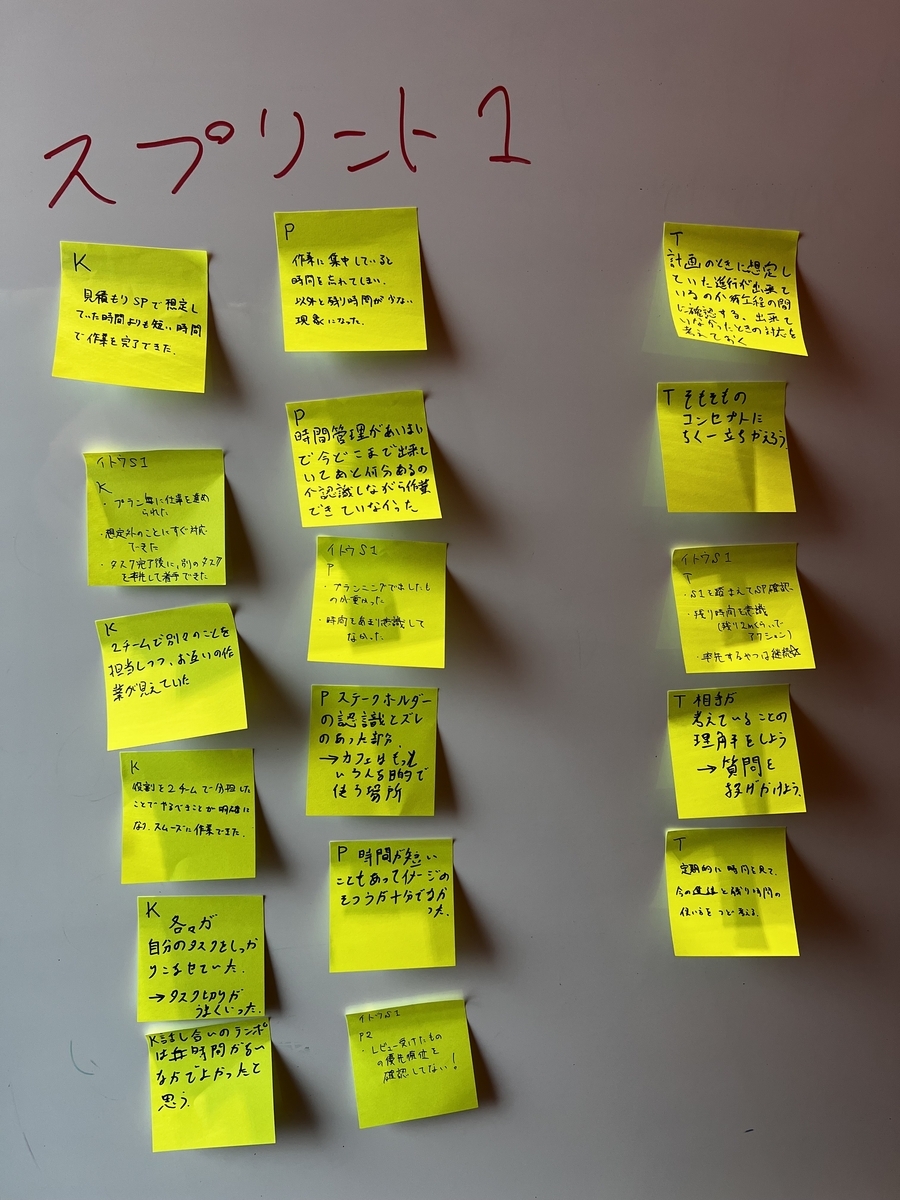 スプリント1
K
見積もりSPで想定し
ていた時間よりも短い時間
で作業を完了できた.
イトウS1
K
・プラン毎に仕事を進め
られた
・想定外のことにすぐ対応
できた
・タスク完了後に,別のタスク
を率先して着手できた
K
2チームで別々のことを
担当しつつ、お互いの作
業が見えていた
K
役割を2チームで分担した
ことでやるべきことが明確に
なり、スムーズに作業できた.
K
各々が
自分のタスクをしっか
りこなせていた.
→タスク切りが
うまくいった.
K話し合いのテンポ
は時間がない
なかでよかったと
思う.
P
作業に集中していると
時間を忘れてしまい.
以外と残り時間が少ない
現象になった.
P
時間管理があいまい
で今どこまで出来て
いてあと何分あるの
か認識しながら作業
できていなかった
イトウS1
P
・プランニングでましたも
のが重かった
・時間をあまり意識して
なかった
P ステークホルダー
の認識とズレ
のあった部分.
→カフェはもっと
いろんな目的で
使う場所
P 時間が短い
こともあってイメージの
そうつうが十分でなかっ
った.
イトウS1
P2
・レビュー受けたもの
の優先順位を
確認してない!
T
計画のときに想定し
ていた進行が出来て
いるのか各工程の間
に確認する、出来て
いなかったときの対応を
考えておく
T そもそもの
コンセプトに
ちく一立ちかえろう.
イトウS1
T
・S1を踏まえてSP確認
・残り時間を意識
(残り2mくらいで
アクション)
・率先するやつは継続
T 相手が
考えていることの
理解をしよう
→質問を
投げかけよう.
T
定期的に時間を見て、
今の進捗と残り時間の
使い方をつど考える.